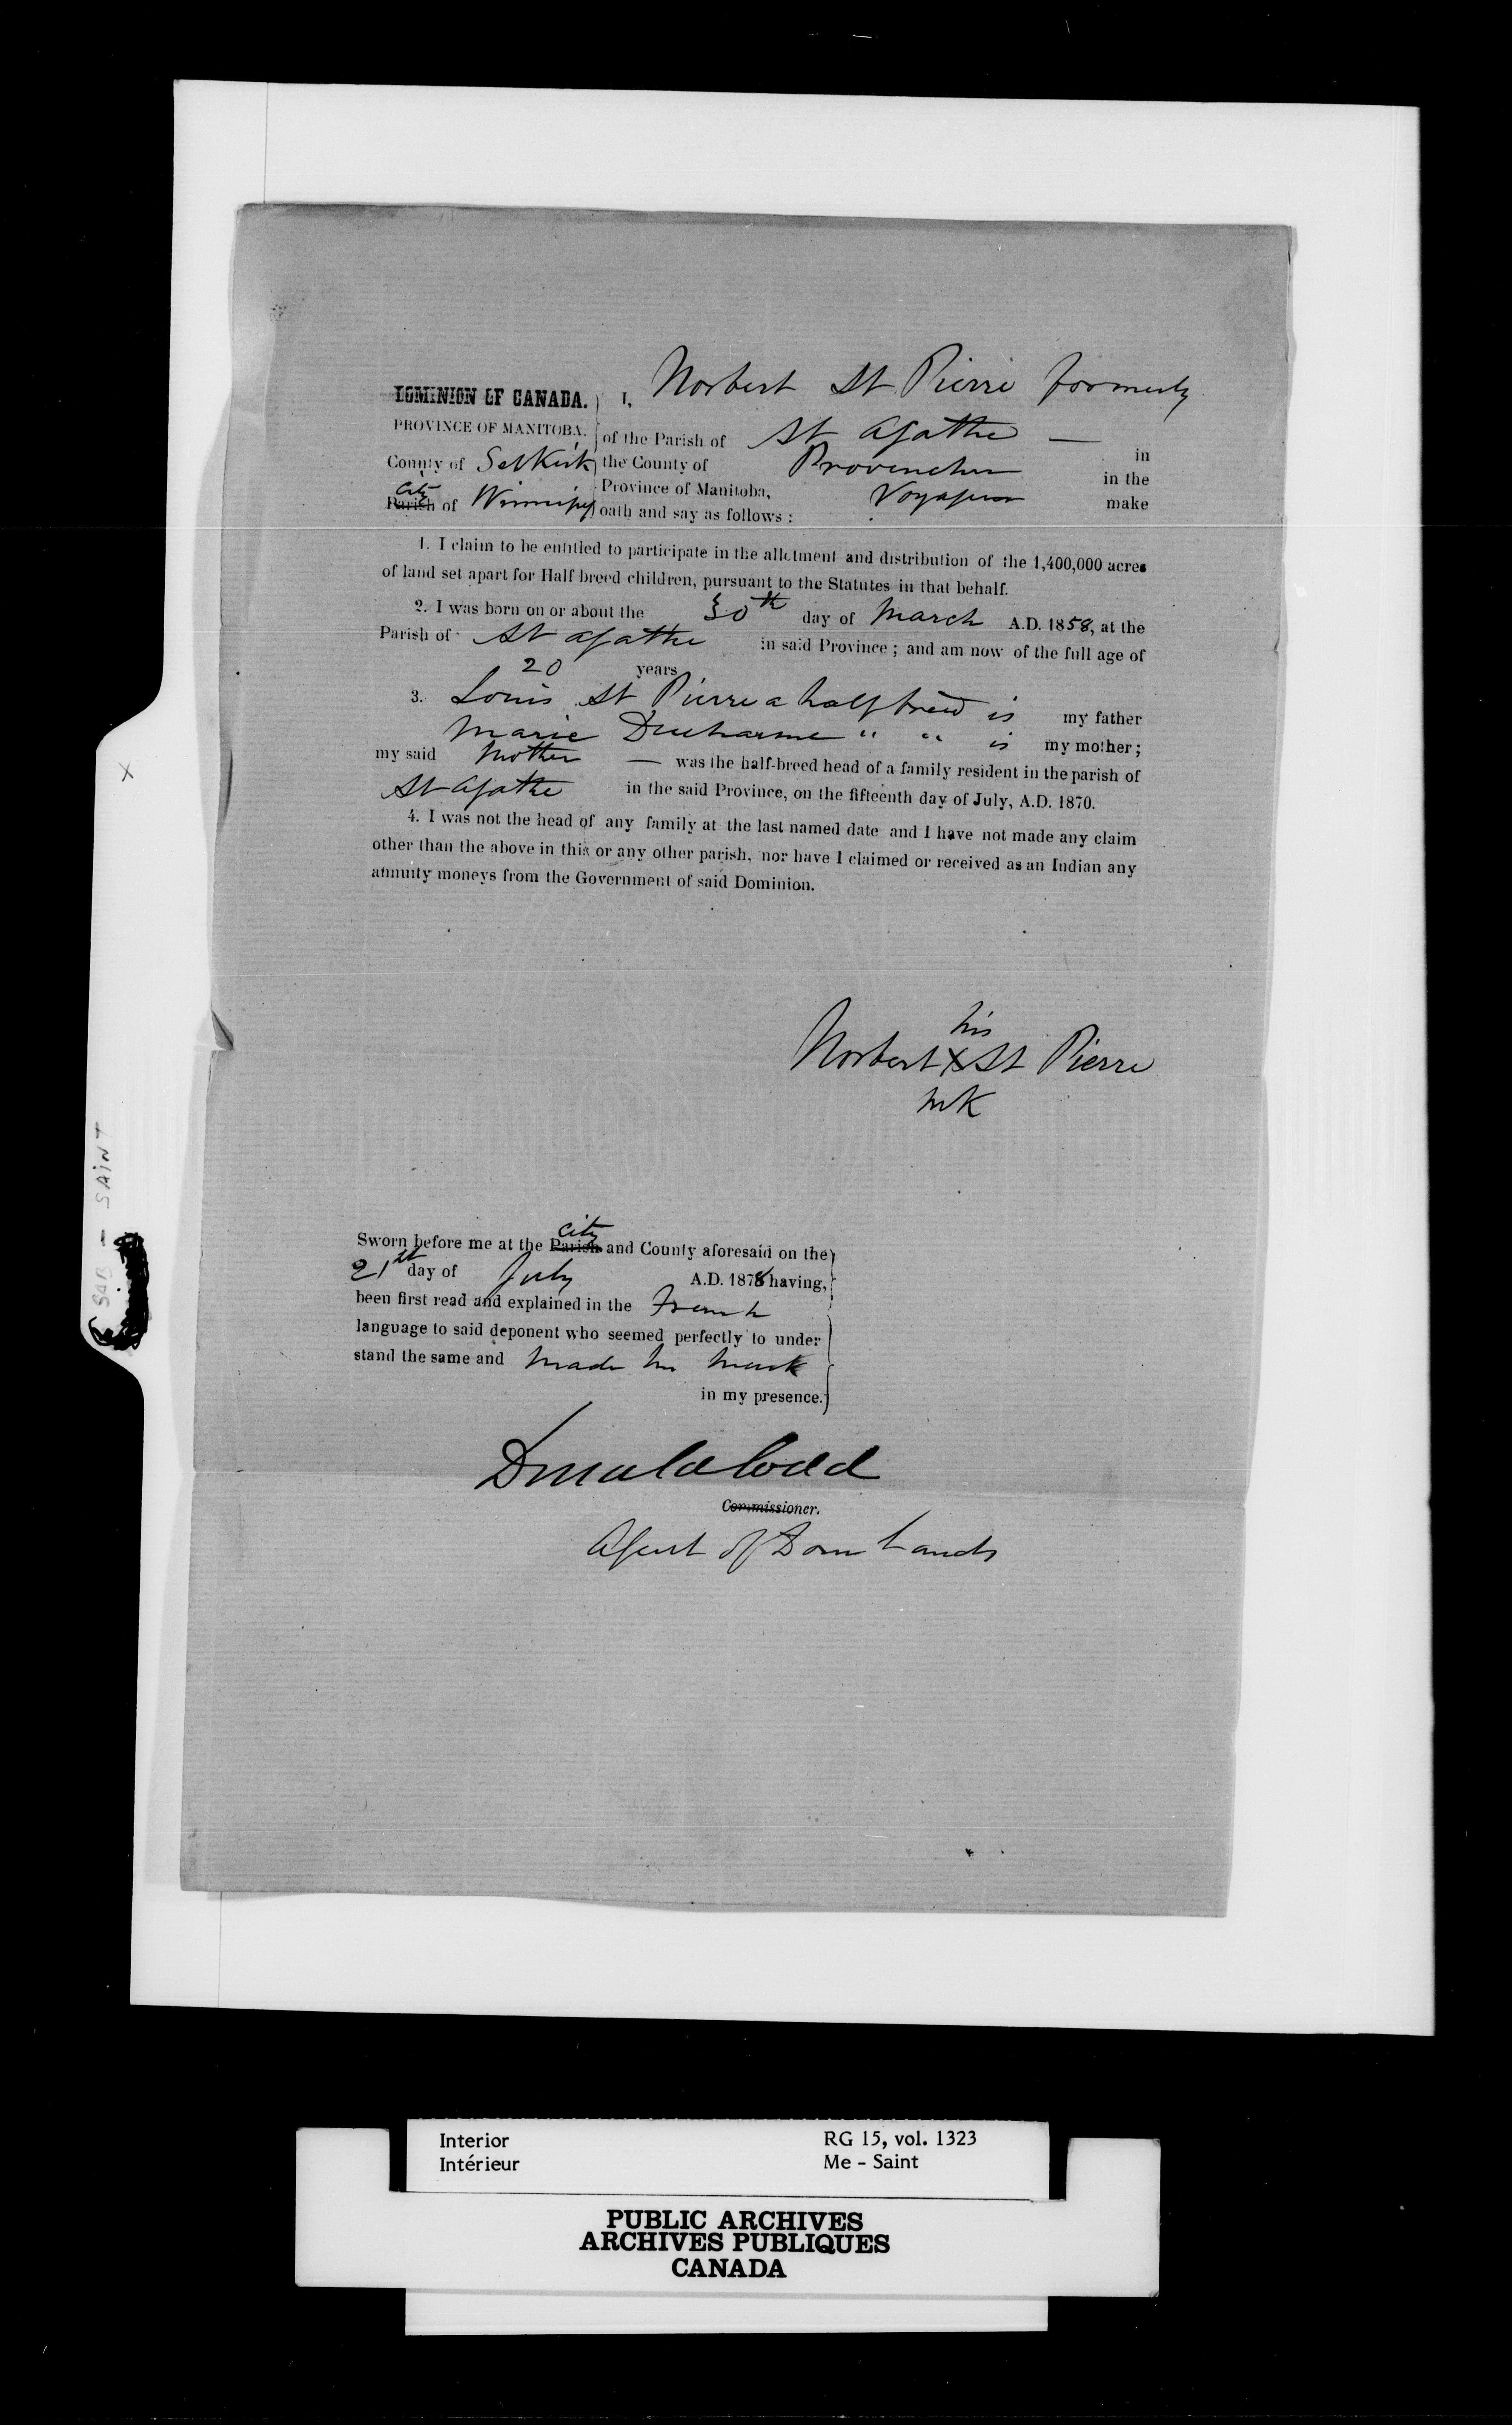 Norbert St Pierre formerly
DOMINION OF CANADA. I,
PROVINCE OF MANITOBA, of the Parish of St Agathe — in
County of Selkirk the County of Provencher in the
City
Parish of Winnipeg Province of Manitoba, Voyageur make
oath and say as follows :
1. I claim to be entitled to participate in the allotment and distribution of the 1,400,000 acres
of land set apart for Half breed children, pursuant to the Statutes in that behalf.
2. I was born on or about the 30th day of March A.D. 1858, at the
Parish of St Agathe in said Province ; and am now of the full age of
20 years
3. Louis St Pierre a half breed is my father
Marie Ducharme " " is my mother ;
my said Mother — was the half-breed head of a family resident in the parish of
St Agathe in the said Province, on the fifteenth day of July, A.D. 1870.
4. I was not the head of any family at the last named date and I have not made any claim
other than the above in this or any other parish, nor have I claimed or received as an Indian any
annuity moneys from the Government of said Dominion.
his
Norbert X St Pierre
mk
SAB - SAINT
X
city
Sworn before me at the Parish and County aforesaid on the
21st day of July A.D. 1878 having,
been first read and explained in the French
language to said deponent who seemed perfectly to under
stand the same and made his mark
in my presence.
Donald Codd
Commissioner.
Agent of Dom Lands
Interior RG 15, vol. 1323
Intérieur Me - Saint
PUBLIC ARCHIVES
ARCHIVES PUBLIQUES
CANADA